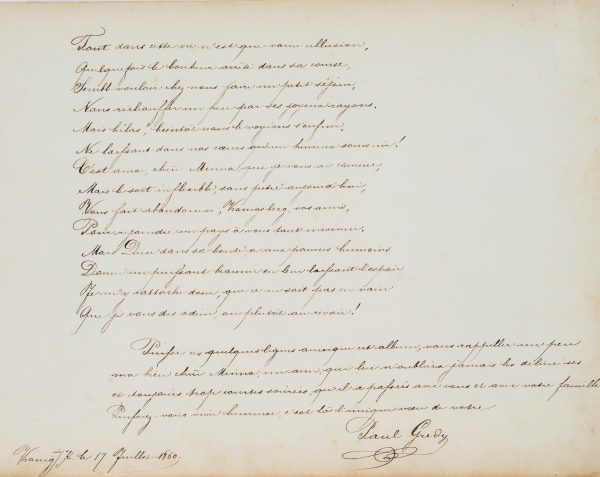 Tout dans cette vie n'est que vaine illusion,
Quelquefois le bonheur arrêté dans sa course,
Semble vouloir chez nous faire un petit séjour,
Nous réchauffer un peu par ses joyeux rayons.
Mais hélas! bientôt nous le voyons s'enfuir,
Ne laissant dans nos cœurs qu'un heureux souvenir!
C'est ainsi, chère Minna que je vous ai connue,
Mais le sort inflexible, sans pitié aujourd'hui,
Vous fait abandonner, vos amis,
Pour rejoindre un pays à vous tant inconnu.
Mais Dieu dans sa bonté, a aux pauvres humains
Donné un puissant baume en leur laissant l'espoir
Je m'y rattache donc, que ce ne soit pas en vain
Que je vous dis adieu, ou plutôt au revoir!
Puisse ces quelques lignes ainsi que cet album, vous rappeller un peu
ma bien chère Minna, un ami, qui lui n'oubliera jamais les délicieuses
et toujours trop courtes soirées, qu'il a passées avec vous et avec votre famille
Puissez-vous vivre heureuse, c'est là l'unique vœu de votre
Paul Gredy
le 17 Juillet 1860.